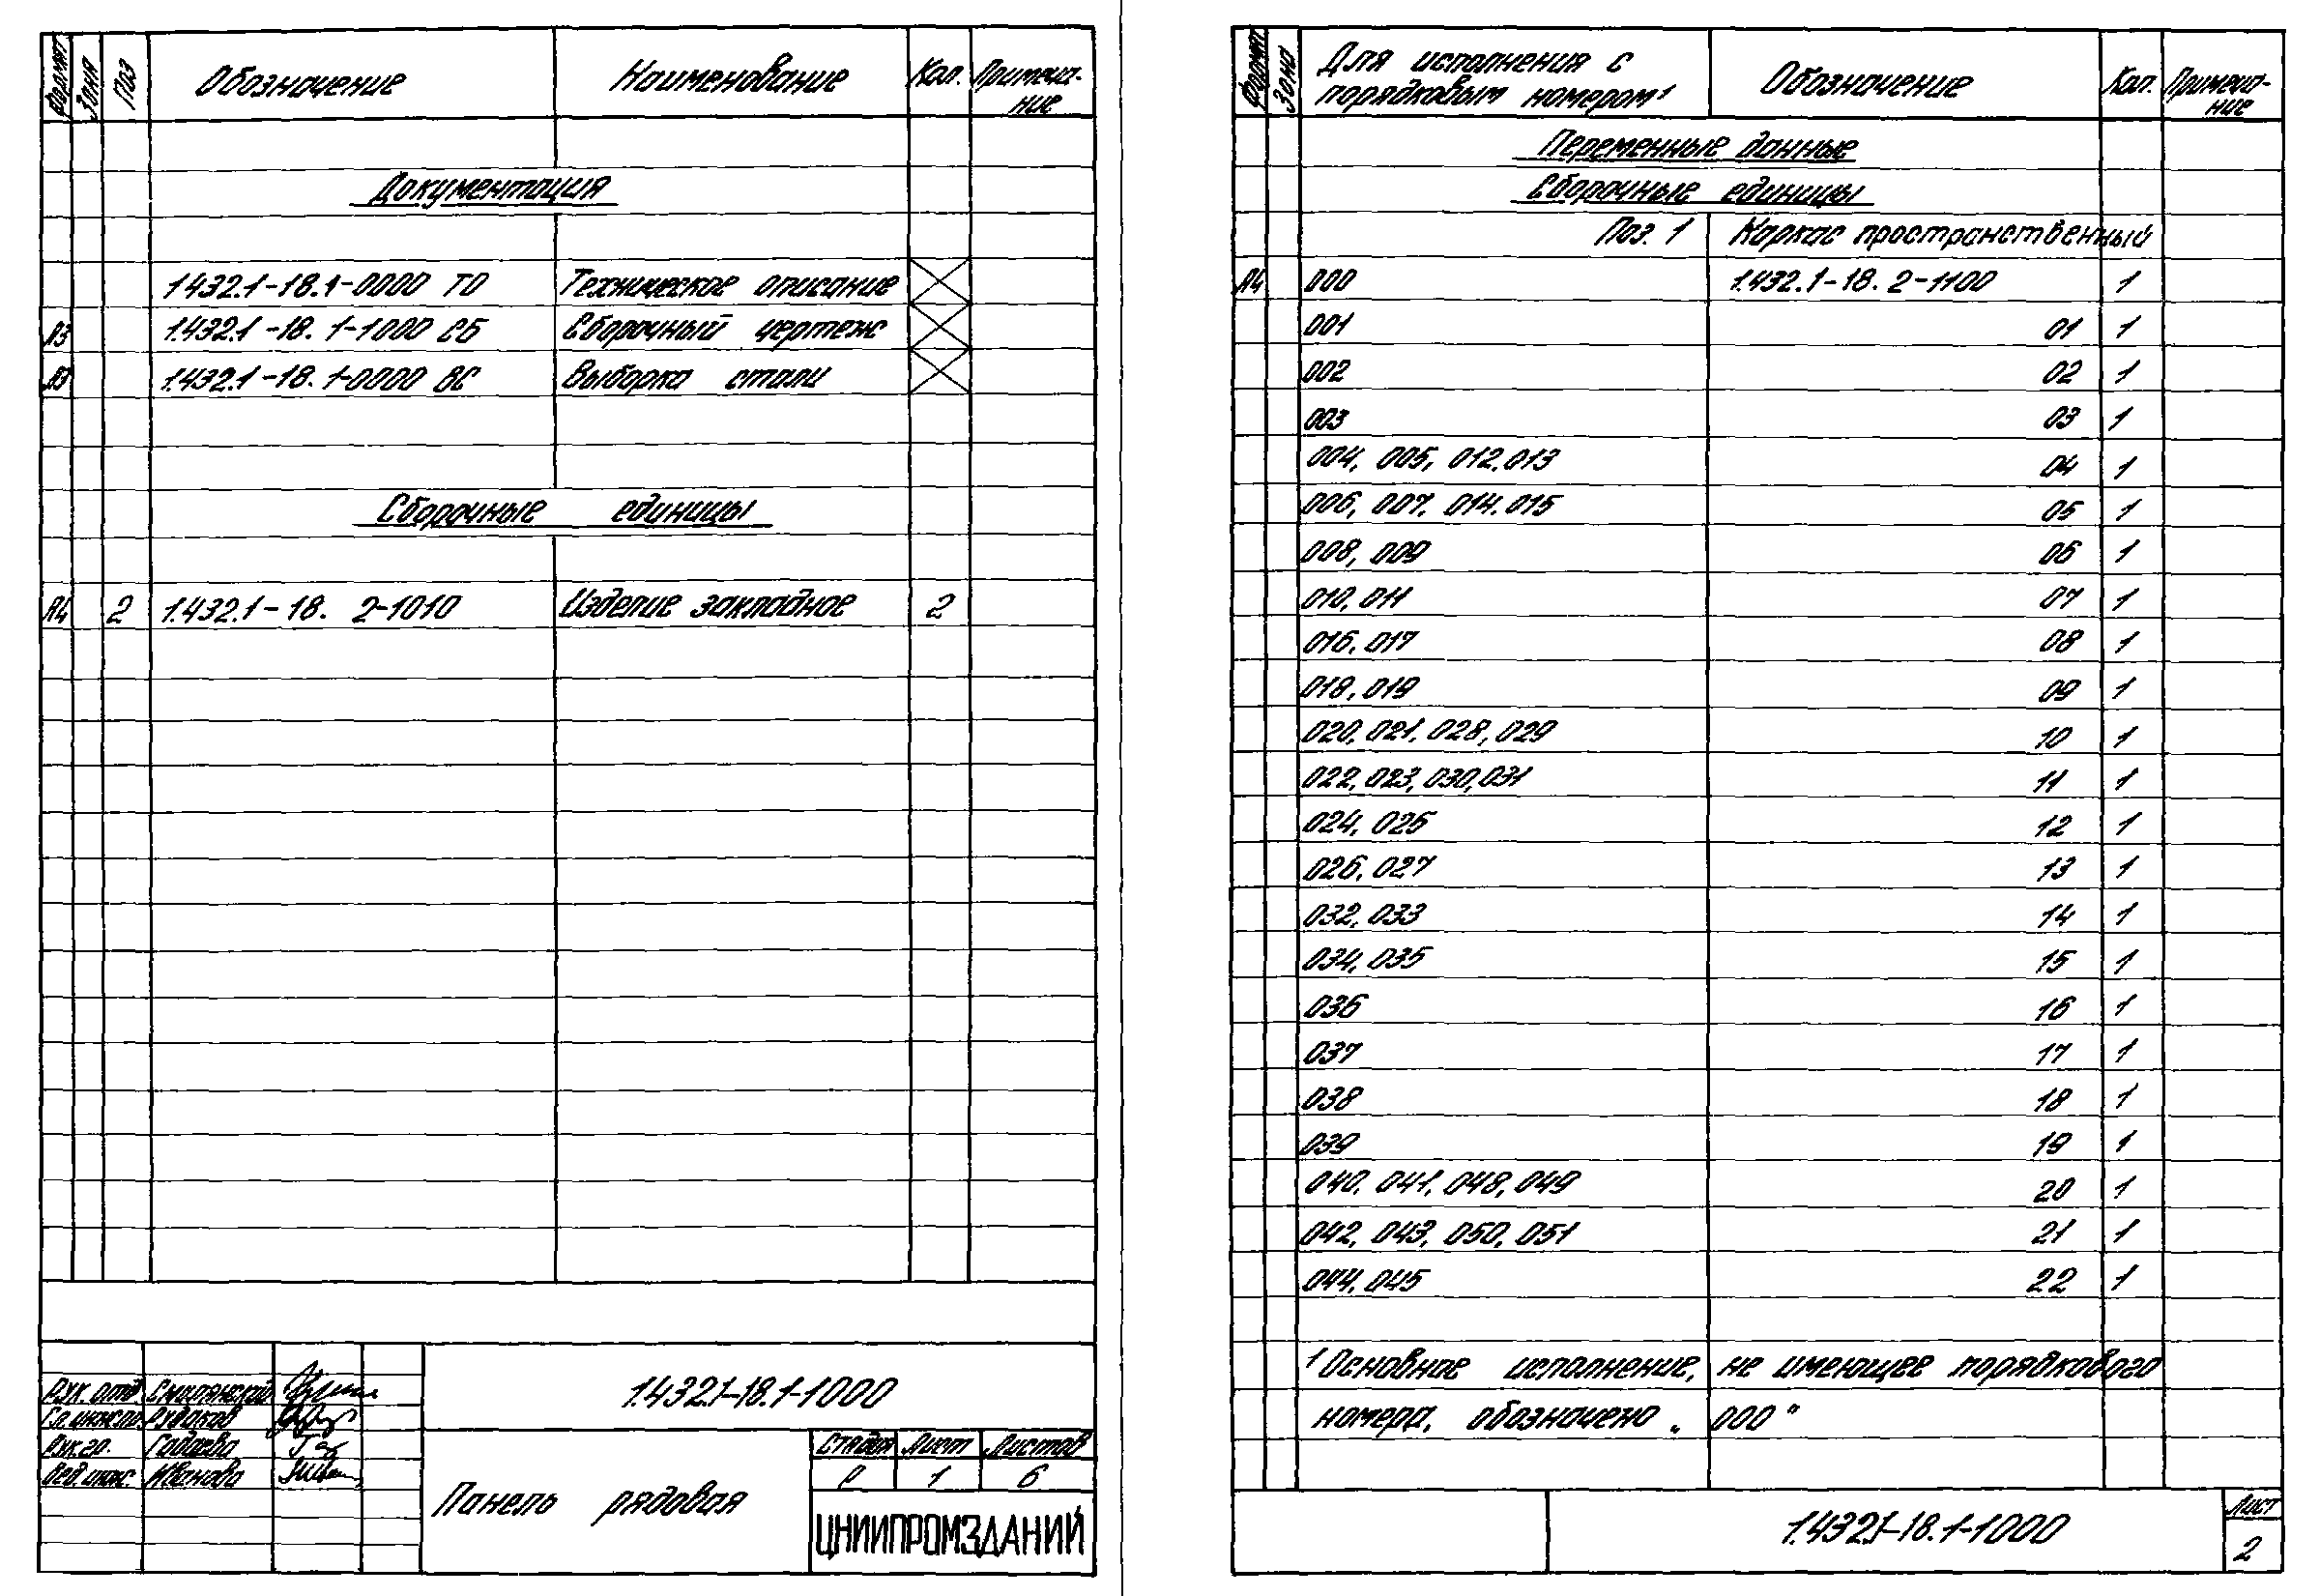 Формат Зона Поз Обозначение Наименование Кол. Примеча-
ние
Документация
1.432.1-18.1-0000 ТО Техническое описание
А3 1.432.1-18.1-1000 СБ Сборочный чертеж
А3 1.432.1-18.1-0000 ВС Выборка стали
Сборочные единицы
А4 2 1.432.1-18. 2-1010 Изделие закладное 2
1.432.1-18.1-1000
Рук. отд. Смилянский
Гл. инж. пр. Рудаков
Рук. гр. Гадаева
Вед. инж. Иванова
Панель рядовая
Стадия Лист Листов
Р 1 6
ЦНИИПРОМЗДАНИЙ
Формат Зона Для исполнения с
порядковым номером¹ Обозначение Кол. Примеча-
ние
Переменные данные
Сборочные единицы
Поз. 1 Каркас пространственный
А4 000 1.432.1-18. 2-1100 1
001 01 1
002 02 1
003 03 1
004, 005, 012, 013 04 1
006, 007, 014, 015 05 1
008, 009 06 1
010, 011 07 1
016, 017 08 1
018, 019 09 1
020, 021, 028, 029 10 1
022, 023, 030, 031 11 1
024, 025 12 1
026, 027 13 1
032, 033 14 1
034, 035 15 1
036 16 1
037 17 1
038 18 1
039 19 1
040, 041, 048, 049 20 1
042, 043, 050, 051 21 1
044, 045 22 1
¹ Основное исполнение, не имеющее порядкового
номера, обозначено „ 000"
1.432.1-18.1-1000
Лист
2